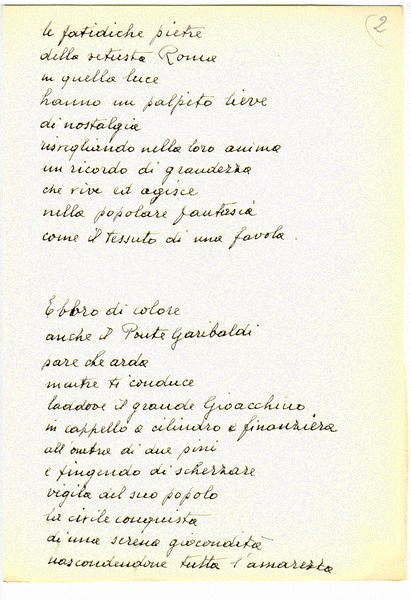 2
le fatidiche pietre
della vetusta Roma
in quella luce
hanno un palpito lieve
di nostalgia
risvegliando nella loro anima
un ricordo di grandezza
che vive ed agisce
nella popolare fantasia
come il tessuto di una favola.
Ebbro di colore
anche il Ponte Garibaldi
pare che arda
mentre ti conduce
laddove il grande Gioacchino
in cappello a cilindro e finanziera
all'ombra di due pini
e fingendo di scherzare
vigila del suo popolo
la civile conquista
di una serena giocondità
nascondendone tutta l'amarezza